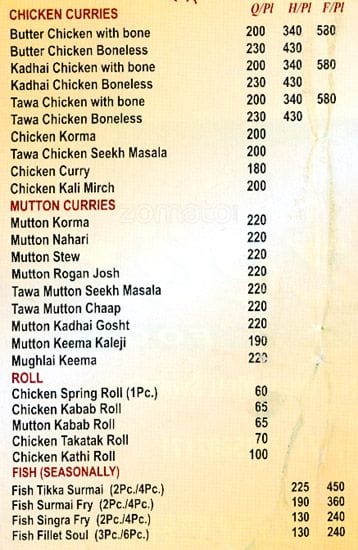 CHICKEN CURRIES Q/Pl H/Pl F/Pl
Butter Chicken with bone 200 340 580
Butter Chicken Boneless 230 430
Kadhai Chicken with bone 200 340 580
Kadhai Chicken Boneless 230 430
Tawa Chicken with bone 200 340 580
Tawa Chicken Boneless 230 430
Chicken Korma 200
Tawa Chicken Seekh Masala 200
Chicken Curry 180
Chicken Kali Mirch 200
MUTTON CURRIES
zomato
Mutton Korma 220
Mutton Nahari 220
Mutton Stew 220
Mutton Rogan Josh 220
Tawa Mutton Seekh Masala 220
Tawa Mutton Chaap 220
Mutton Kadhai Gosht 220
Mutton Keema Kaleji 190
Mughlai Keema 220
ROLL
Chicken Spring Roll (1Pc.) 60
Chicken Kabab Roll 65
Mutton Kabab Roll 65
Chicken Takatak Roll 70
Chicken Kathi Roll 100
FISH (SEASONALLY)
Fish Tikka Surmai (2Pc./4Pc.) 225 450
Fish Surmai Fry (2Pc./4Pc.) 190 360
Fish Singra Fry (2Pc./4Pc.) 130 240
Fish Fillet Soul (3Pc./6Pc.) 130 240